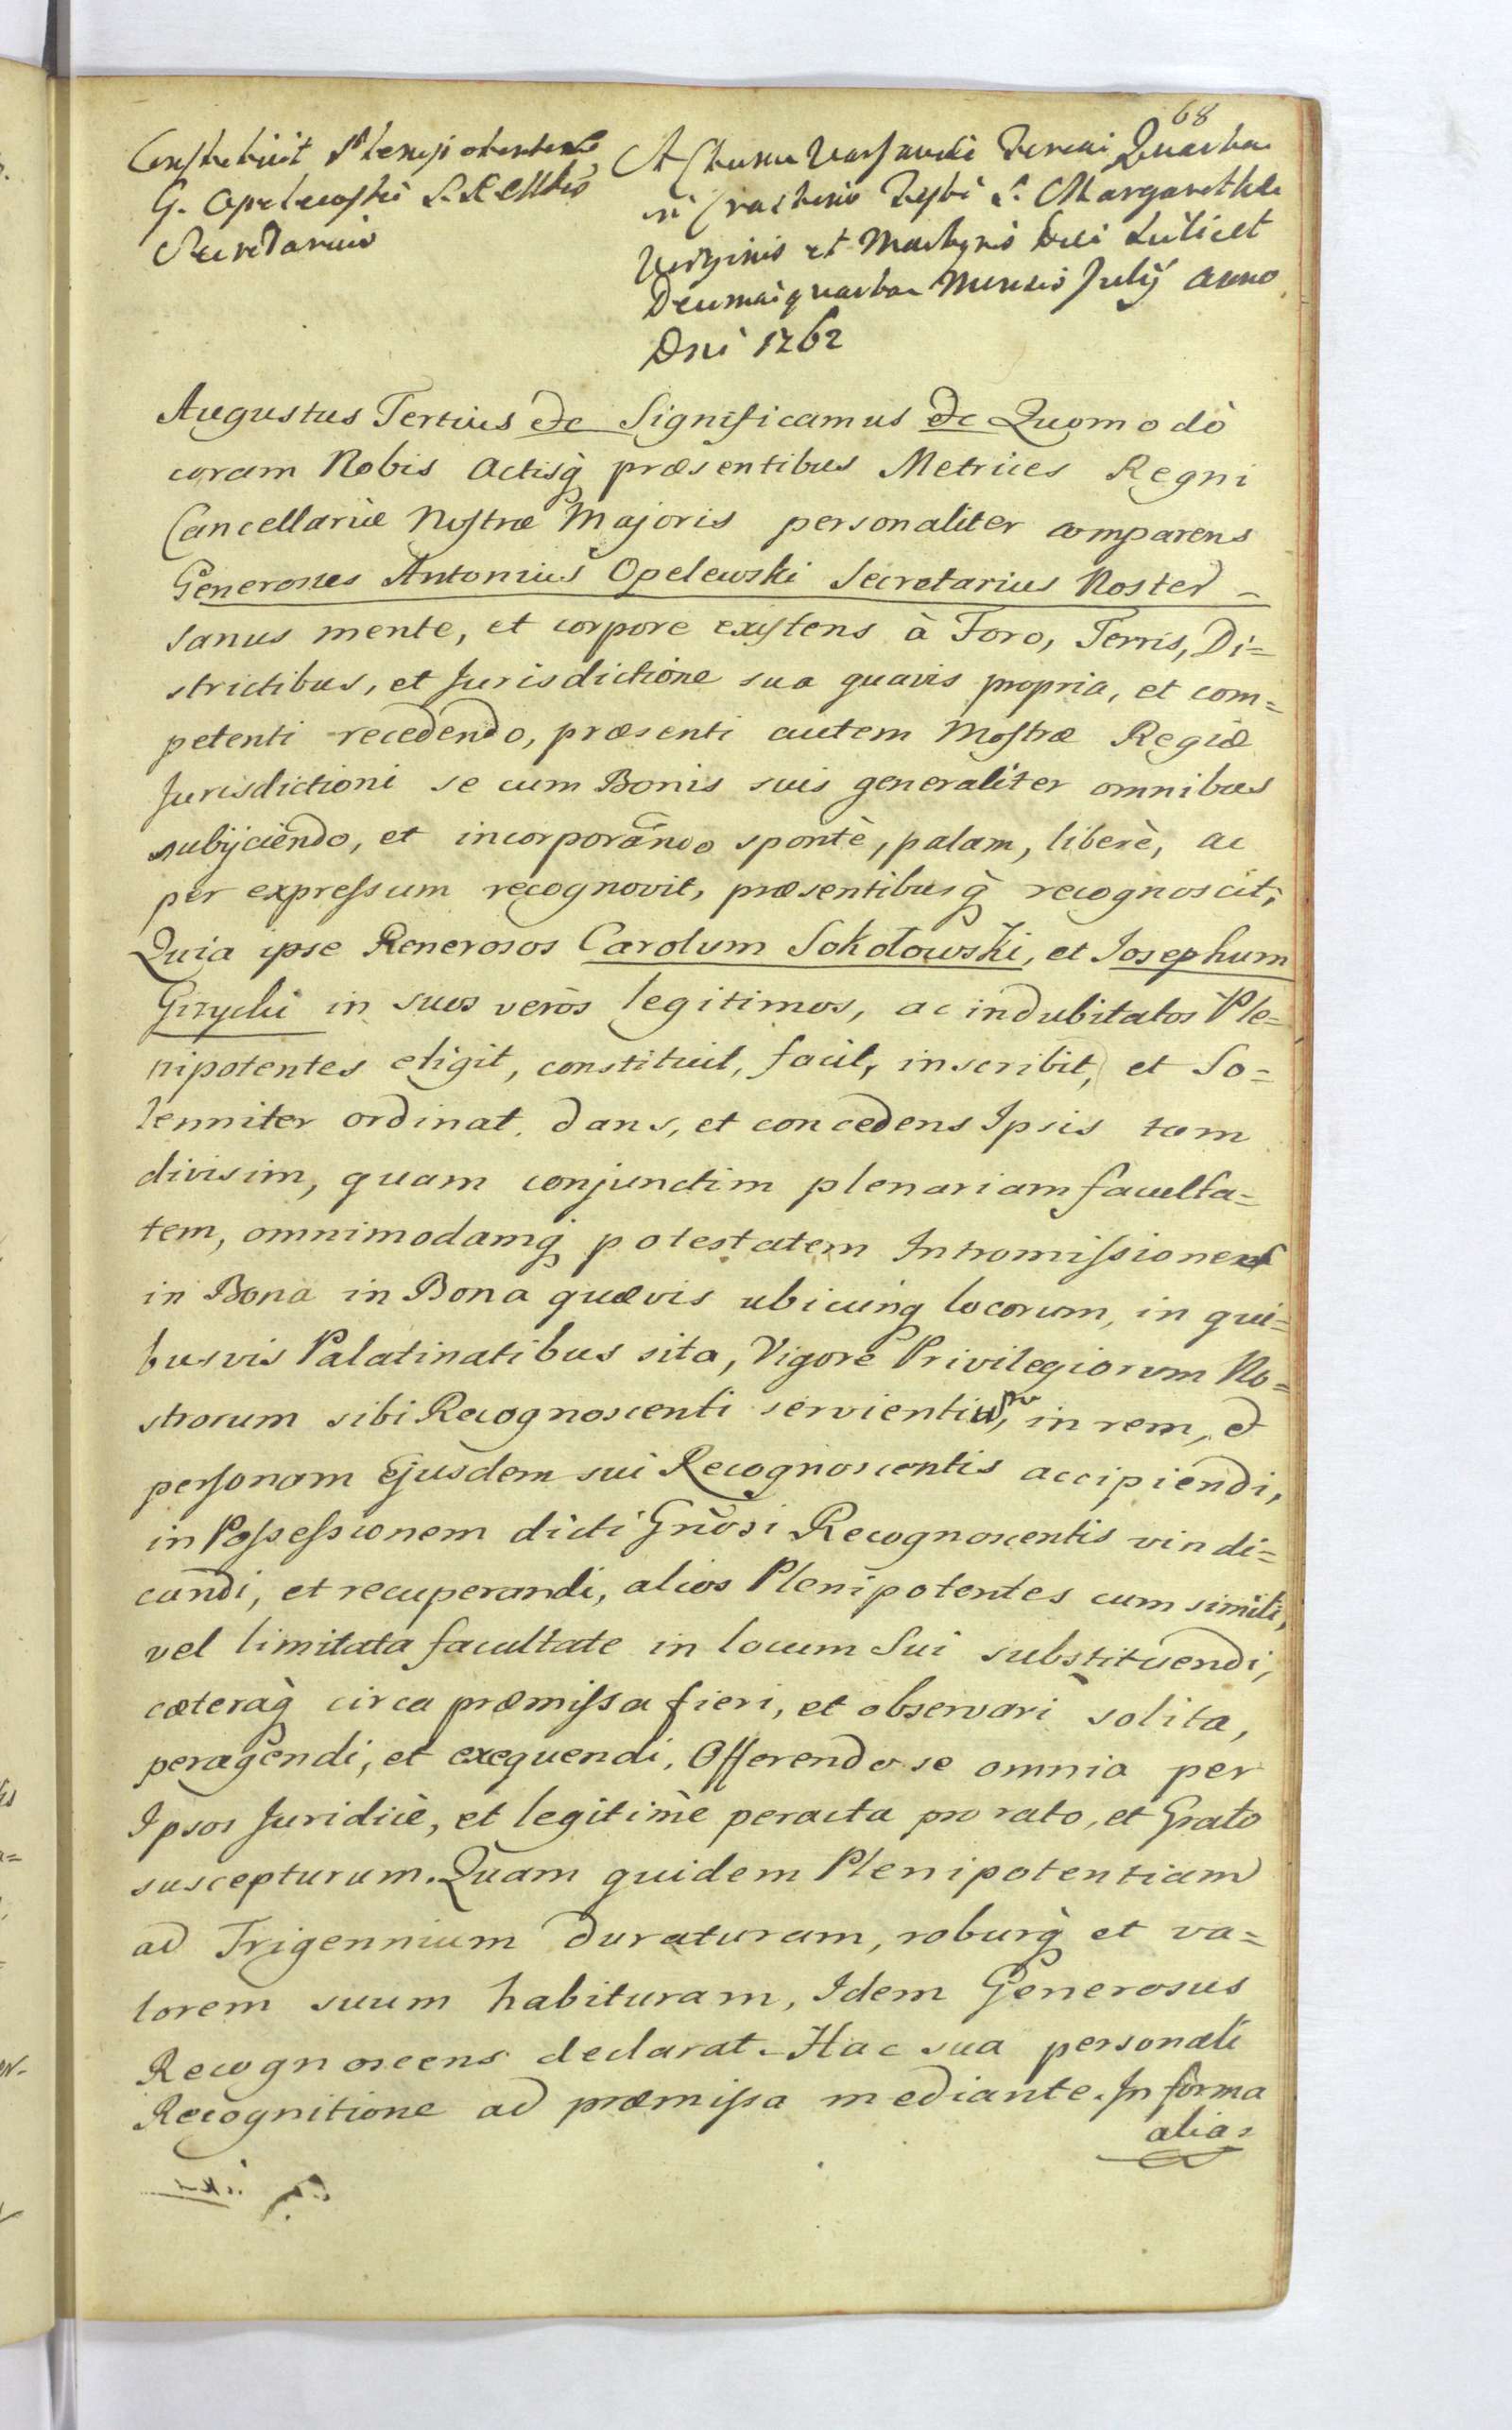 68
Constituit Plenipotentes
G. Opelewski S. R. Mttis
Secretarius
Actum Varsaviae Feria Quarta
in Crastino Festi S. Margarethae
Virginis et Martyris Die Scilicet
Decima quarta Mensis Julij Anno
Dni 1762
Augustus Tertius etc Significamus etc Quomodò
coram Nobis Actisq̀ præsentibus Metrices Regni
Cancellariæ Nostræ Majoris personaliter comparens
Generosus Antonius Opelewski Secretarius Noster -
sanus mente, et corpore existens à Foro, Terris, Di=
strictibus, et Jurisdictione sua quavis propria, et com=
petenti recedendo, præsenti autem Nostræ Regiæ
Jurisdictioni se cum Bonis suis generaliter omnibus
subijciendo, et incorporando spontè, palam, liberè, ac
per expressum recognovit, præsentibusq̀ recognoscit;
Quia ipse Generosos Carolum Sokołowski, et Josephum
Girycki in suos veros legitimos, ac indubitatos Ple=
nipotentes eligit, constituit, facit, inscribit, et So=
lenniter ordinat. dans, et concedens Ipsis tam
divisim, quam conjunctim plenariam faculta=
tem, omnimodamq̀ potestatem Intromissiones
in Bona in Bona quævis ubicunq̀ locorum, in qui=
busvis Palatinatibus sita, Vigore Privilegiorum No=
strorum sibi Recognoscenti servientium, in rem, et
personam Ejusdem sui Recognoscentis accipiendi,
in Possessionem dicti Gnosi Recognoscentis vindi=
candi, et recuperandi, alios Plenipotentes cum simili,
vel limitata facultate in locum Sui substituendi,
cæteraq̀ circa præmissa fieri, et observari solita,
peragendi, et exequendi. Offerendo se omnia per
Ipsos Juridicè, et legitimè peracta pro rato, et Grato
suscepturum. Quam quidem Plenipotentiam
ad Trigennium duraturam, roburq̀ et va=
lorem suum habituram, Idem Generosus
Recognoscens declarat. Hac sua personali
Recognitione ad præmissa mediante. In forma
alias